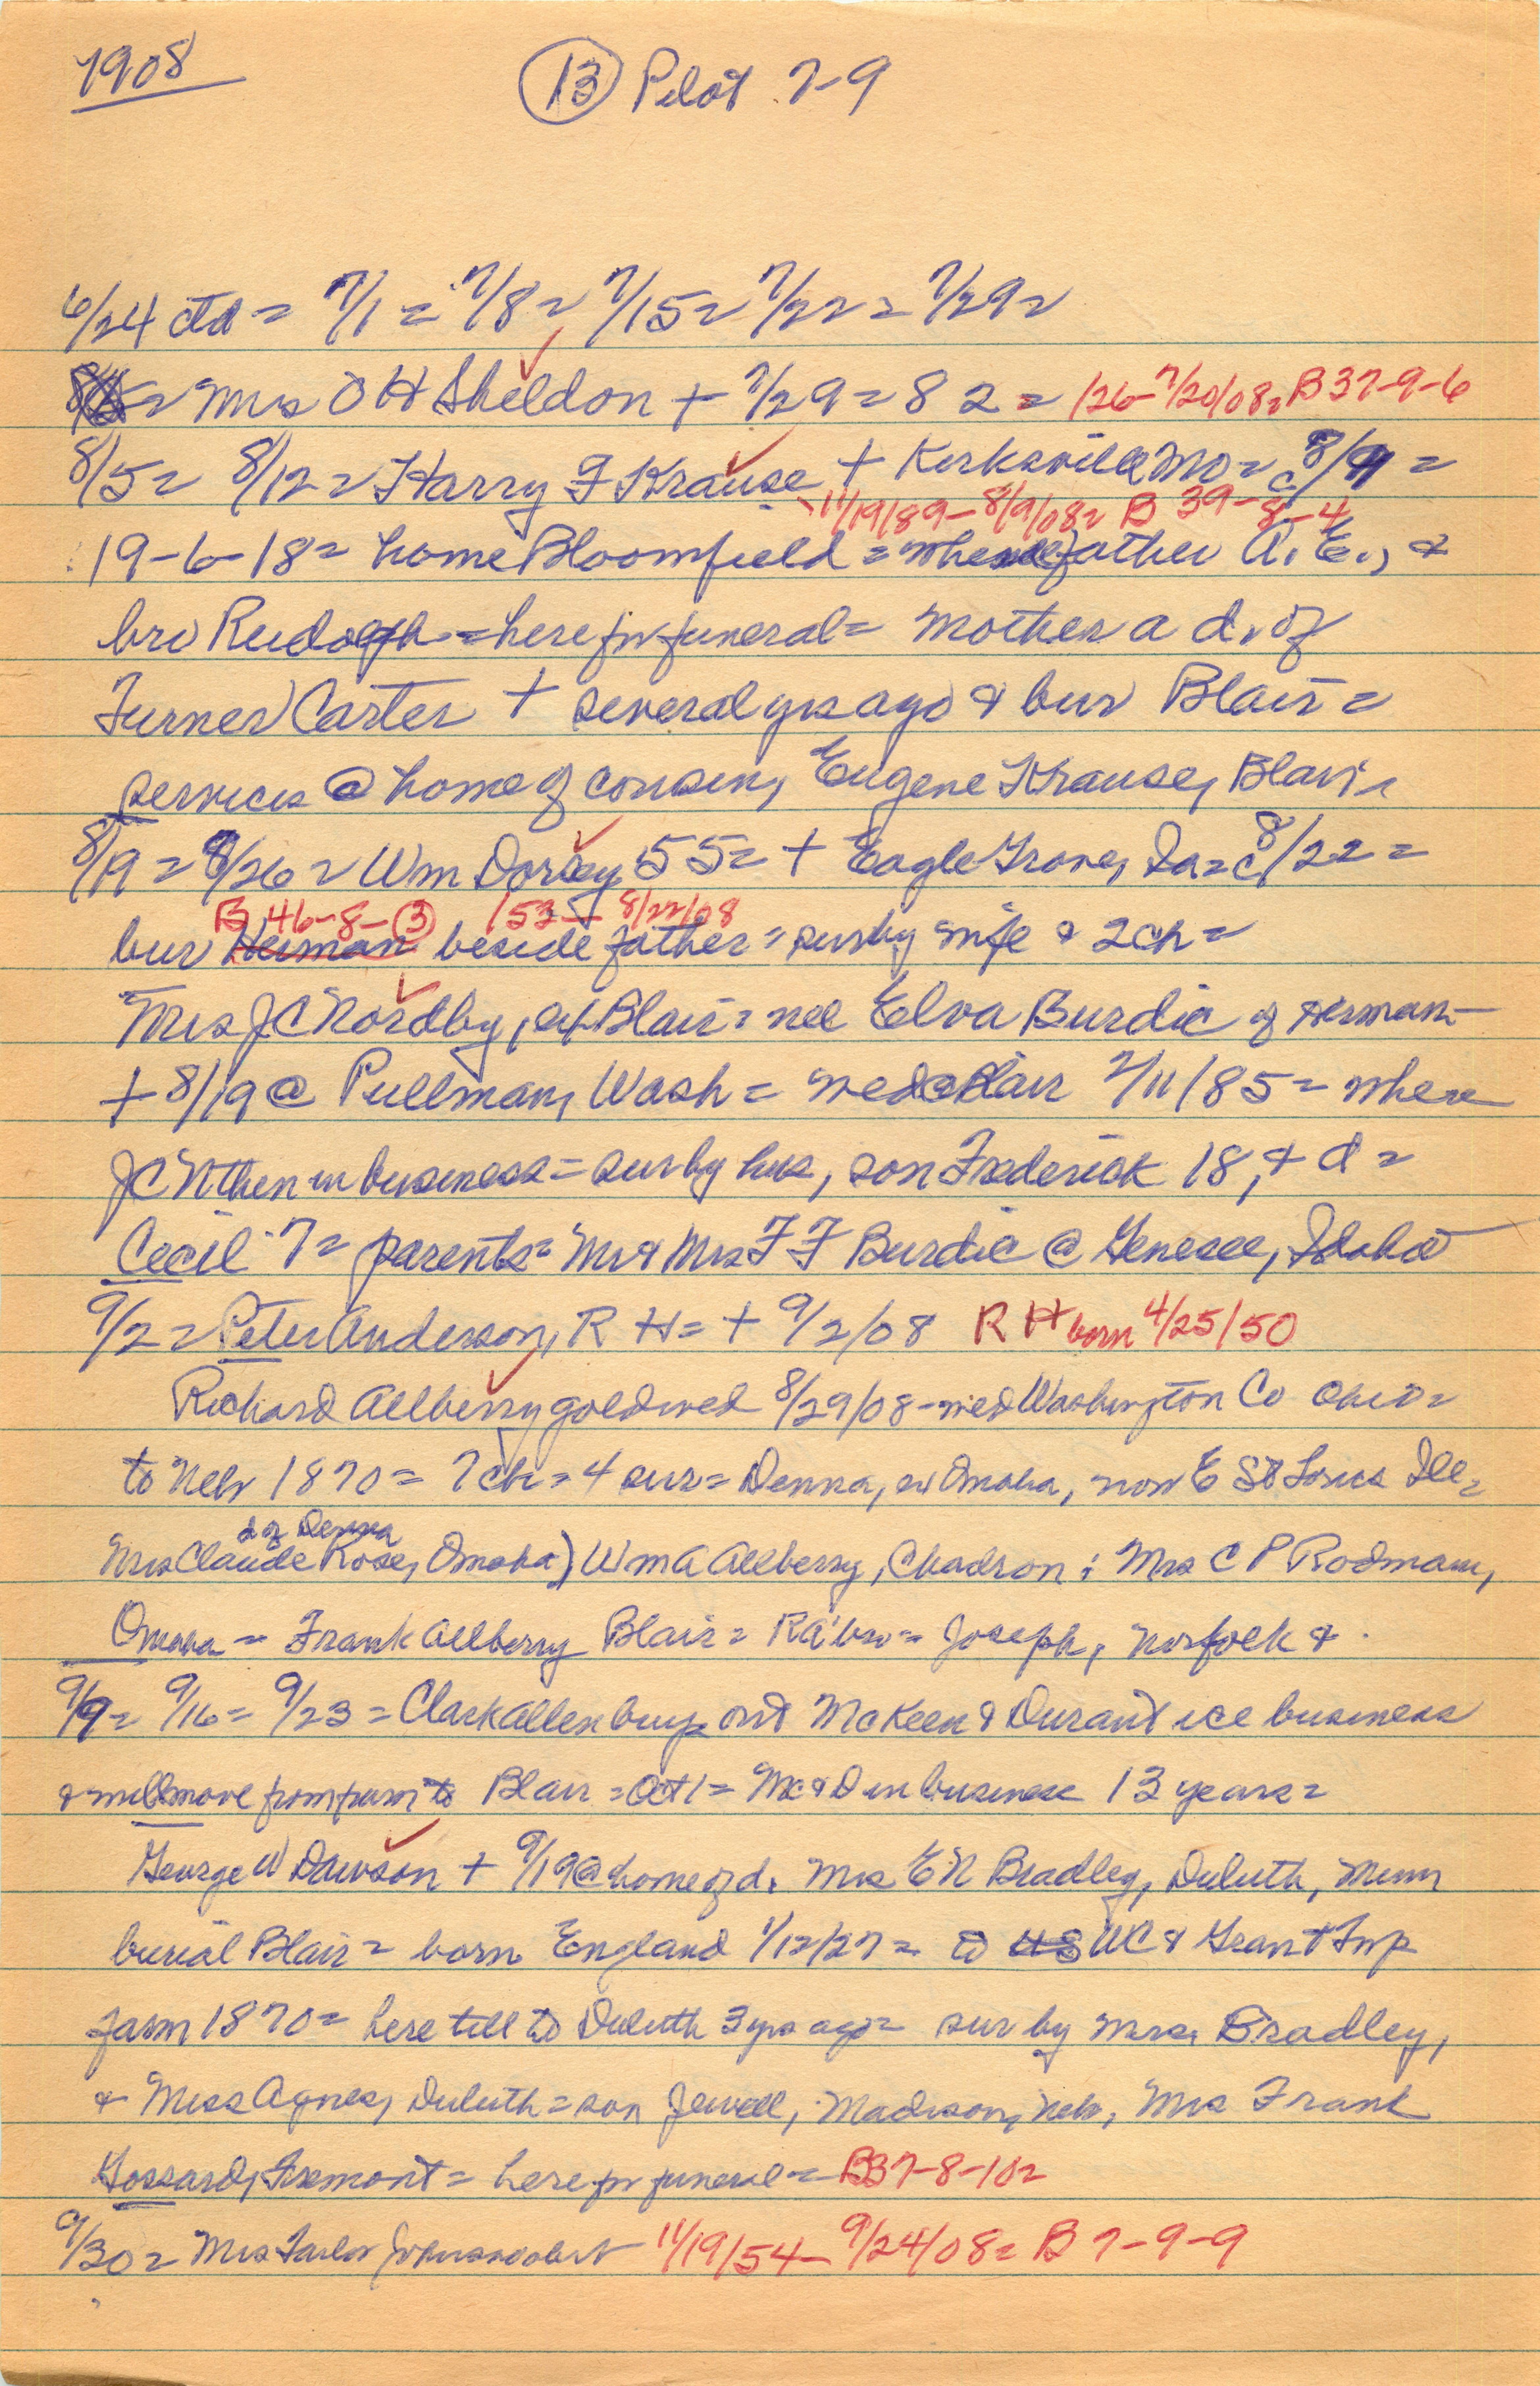 1908
(13) Pilot 7-9
6/24 ctd = 7/1 = 7/8 = 7/15 = 7/22 = 7/29 =
= Mrs O H Sheldon + 7/29 = 82 = 126- 7/20/08 = B 37-9-6
8/5 = 8/12 = Harry F Krause + Kirksville Mo = c 8/9 =
11/19/89 - 8/9/08 = B 39-8-4
19-6-18 = home Bloomfield = where father A. E., &
bro Rudolph = here for funeral = mother a d. of
Turner Carter + several yrs ago & bur Blair =
services @ home of cousin, Eugene Krause, Blair
8/19 = 8/26 = Wm Dorsey 55 = + Eagle Grove, Ia = c 8/22 =
B 46-8-(3) 153- 8/22/08
bur Herman beside father = sur by wife & 2 ch =
Mrs J C Nordby, ex Blair = nee Elva Burdic of Herman -
+ 8/19 @ Pullman, Wash = wed @ Blair 2/11/85 = where
J C N then in business = sur by hus, son Frederick 18, & d =
Cecil 7 = parents = Mr & Mrs F F Burdic @ Genesee, Idaho
9/2 = Peter Anderson, R H = + 9/2/08 R H born 4/25/50
Richard Allberry gold wed 8/29/08 - wed Washington Co Ohio =
to Neb 1870 = 7 ch = 4 sur = Denna, ex Omaha, now E St Louis Ill =
d of Denna
Mrs Claude Rose, Omaha) Wm A Allberry, Chadron; Mrs C P Rodman,
Omaha = Frank Allberry Blair = RA' bro = Joseph, Norfolk &
9/9 = 9/16 = 9/23 = Clark Allen buys out McKeen & Durant ice business
& will move from farm to Blair = Oct 1 = Mc & D in business 13 years =
George W Dawson + 9/19 @ home of d. Mrs E N Bradley, Duluth, Minn
burial Blair = born England 1/12/27 = to US WC & Grant Twp
farm 1870 = here till to Duluth 3 yrs ago = sur by Mrs. Bradley,
& Miss Agnes, Duluth = son Jewell, Madison, Neb, Mrs Frank
Gossard, Fremont = here for funeral = B37-8-10 =
9/30 = Mrs 11/19/54 - 9/24/08 = B 7-9-9